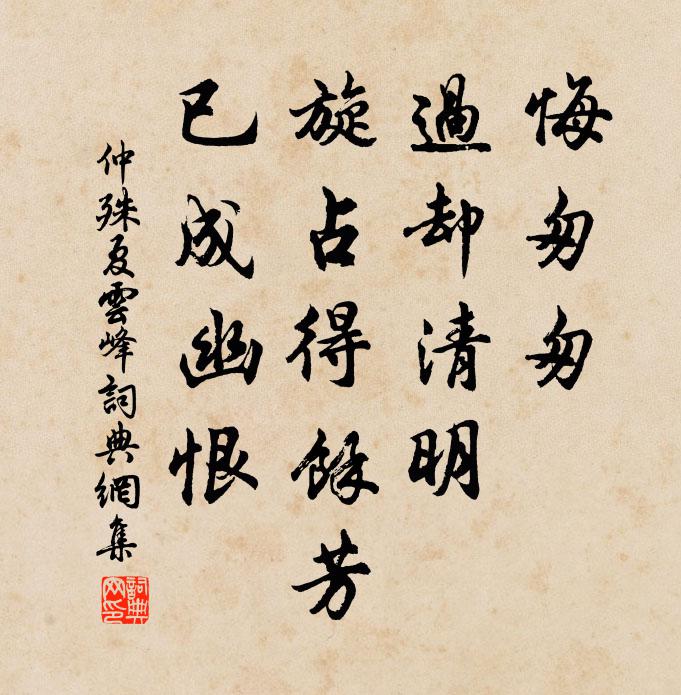 悔匆匆
過却清明
旋占得餘芳
已成幽恨
仲殊夏雲峰詞典網集
詞典網印